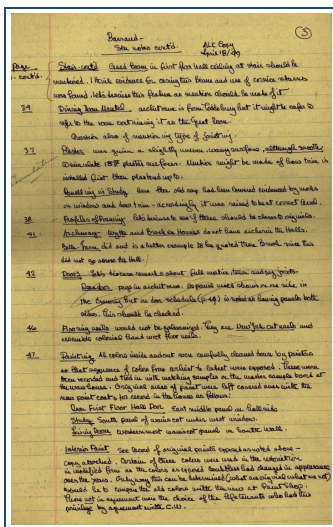 3
Barraud- ALC Copy
See notes cont'd. April 18/49
Page
cont'd. Stair-cont'd Cased beam in first floor hall ceiling at stair should be
mentioned. I think evidence for casing this beam and use of cornice returns
was found. Lets describe this feature as mention should be made of it.
34. Dining Room Mantel architrave is from Table Bay but it might be safer to
refer to the room containing it as the Great Room.
Question also of mentioning type of jointing.
37 Plaster was given a slightly uneven wavy surface, although smooth
18th plaster surfaces. Mention might be made of base trim is
installed first then plastered up to.
Panelling in Study
on window and door trim - accordingly it was raised to next correct level.
38 Profiles of Framing Lets discuss to see if these should be closer to originals.
41 Archway - Wythe and Brush Ev. Houses do not have arches in the Halls.
Belle Farm did and is a better example to be quoted than Brush since this
did not go across the Hall.
43 Doors Lets discuss remarks about full mortice, tenon and peg joints.
page in architrave. Six panels used shown on one side in
the but on door schedule (p. 49) is noted as having panels both
sides. This should be checked.
46 Flooring nails would not be galvanized. They are New York cut nails and
resemble colonial hand wrot floor nails.
47 Painting All colors inside and out were carefully cleaned down by painters
so that sequence of colors from earliest to latest were exposed. These were
then recorded and tied in with matching samples on the master sample board at
the warehouse. Original areas of paint were left exposed even with the
new paint coats for record in the house as follows:
Over First Floor Hall Door East middle panel on hall side
Study South panel of wainscot under west window.
Living Room Westernmost wainscot panel on South wall.
Interior Paint See Record of original paints exposed as noted above -
copy attached. Certain of these colors were used in the restoration
in modified form as the colors as exposed doubtless had changed in appearance
over the years. Only way this can be determined (what was original & what was not)
would be to compare the six colors with the ones at Paint Shop.
Those not in agreement were the choice of the life tenants who had this
privilege by agreement with C.W.